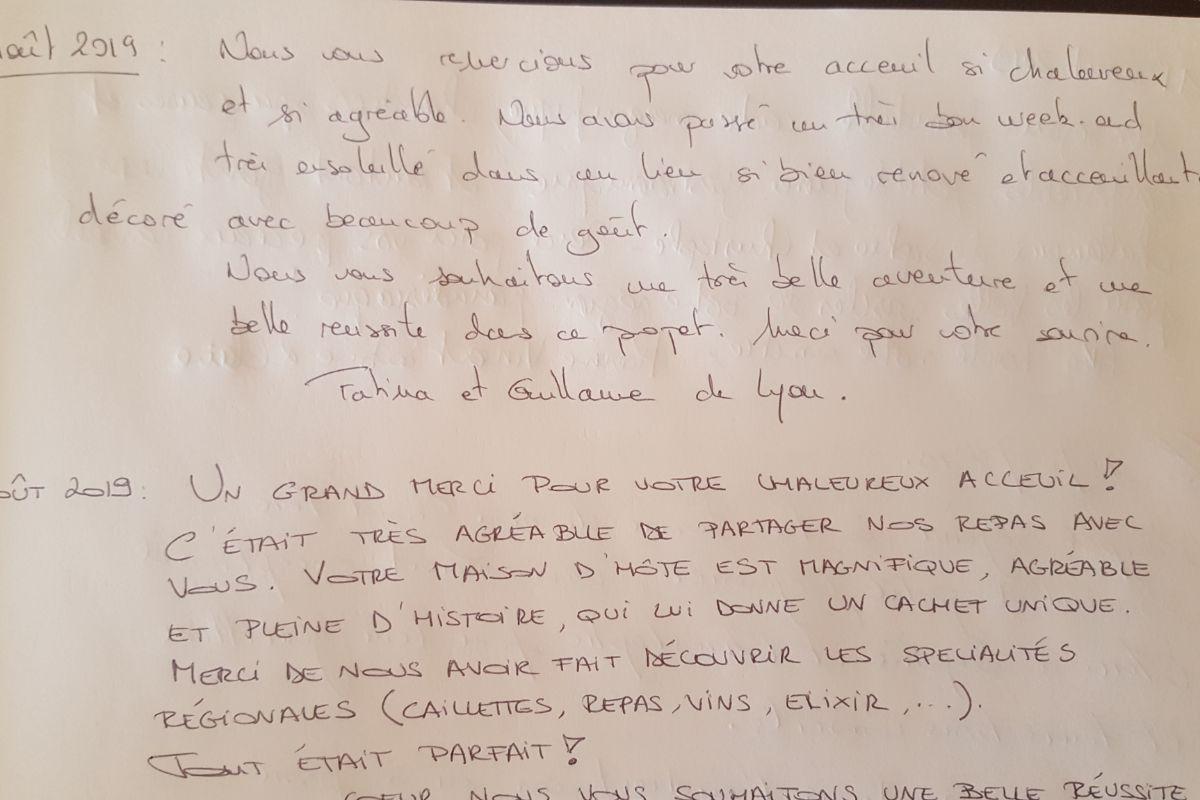 août 2019 : Nous vous remercions pour votre acceuil si chaleureux
et si agréable. Nous avons passé un très bon week-end
très ensoleillé dans un lieu si bien renové et acceuillant,
décoré avec beaucoup de goût.
Nous vous souhaitons une très belle aventure et une
belle reussite dans ce projet. Merci pour votre sourire.
Tahina et Guillaume de Lyon.
OÛT 2019 : UN GRAND MERCI POUR VOTRE CHALEUREUX ACCEUIL !
C'ÉTAIT TRÈS AGRÉABLE DE PARTAGER NOS REPAS AVEC
VOUS. VOTRE MAISON D'HÔTE EST MAGNIFIQUE, AGRÉABLE
ET PLEINE D'HISTOIRE, QUI LUI DONNE UN CACHET UNIQUE.
MERCI DE NOUS AVOIR FAIT DÉCOUVRIR LES SPECIALITÉS
RÉGIONALES (CAILLETTES, REPAS, VINS, ELIXIR, ...).
TOUT ÉTAIT PARFAIT !
COEUR NOUS VOUS SOUHAITONS UNE BELLE RÉUSSITE